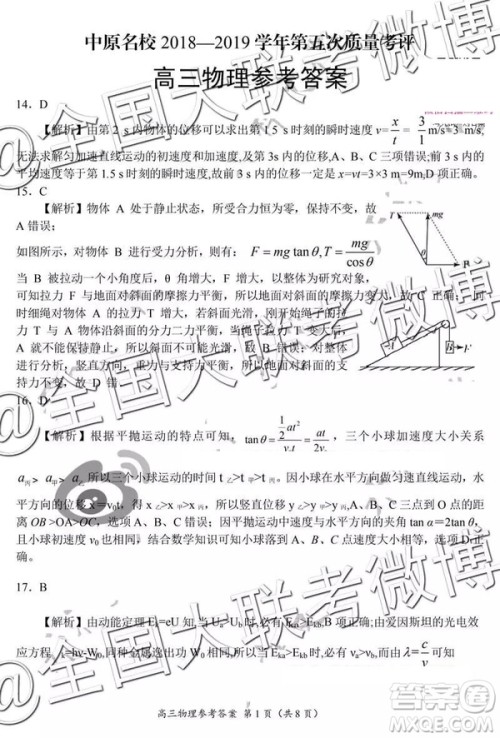 中原名校 2018—2019 学年第五次质量考评
高三物理参考答案
14．D
【解析】由第 2 s 内物体的位移可以求出第 1.5 s 时刻的瞬时速度 v= x/t = 3/1 m/s=3 m/s,
无法求解匀加速直线运动的初速度和加速度,及第 3s 内的位移,A、B、C 三项错误;前 3 s 内的
平均速度等于第 1.5 s 时刻的瞬时速度,故前 3 s 内的位移一定是 x=vt=3×3 m=9m,D 项正确。
15．C
【解析】物体 A 处于静止状态，所受合力恒为零，不变，故
A 错误；
如图所示，对物体 B 进行受力分析，则有： F = mg tanθ, T = mg/cosθ
当 B 被拉动一个小角度后，θ 角增大，F 增大，以整体为研究对象，
可知拉力 F 与地面对斜面的摩擦力平衡，所以地面对斜面的摩擦力增大；同
时细绳对物体 A 的拉力 T 增大，若斜面光滑，刚开始绳子的拉
力 T 与 A 物体沿斜面的分力二力平衡，当 T 增大后，
A 就不能保持静止，所以斜面不可能光滑，故 C 正确；对整体
进行分析，竖直方向，重力与支持力平衡，故支持力
不变，故 D 错。
16．D
【解析】根据平抛运动的特点可知，三个小球加速度大小关系
所以三个小球运动的时间 t乙>t甲>t丙。因小球在水平方向做匀速直线运动，水
平方向的位移 x＝v₀t，得 x乙>x甲>x丙，所以竖直虚线与斜面的交点，A、B、C 三点到 O 点的距
离 OB>OA>OC，选项 A、B、C 错误；因平抛运动中速度与水平方向夹角 tan α＝2tan θ，
且小球初速度 v₀也相同。结合数学知识可知小球落到 B 点时速度最大，选项 D 正确。
17．B
【解析】由动能定理 Eₖ=eU 知,当 Uₐ>Uᵦ时,必有 Eₖₐ>Eₖᵦ,故 B 对;由爱因斯坦的光电效
高三物理参考答案 第 1 页（共 8 页）
@全国大联考微博
@全国大联考微博
@全国大联考微博